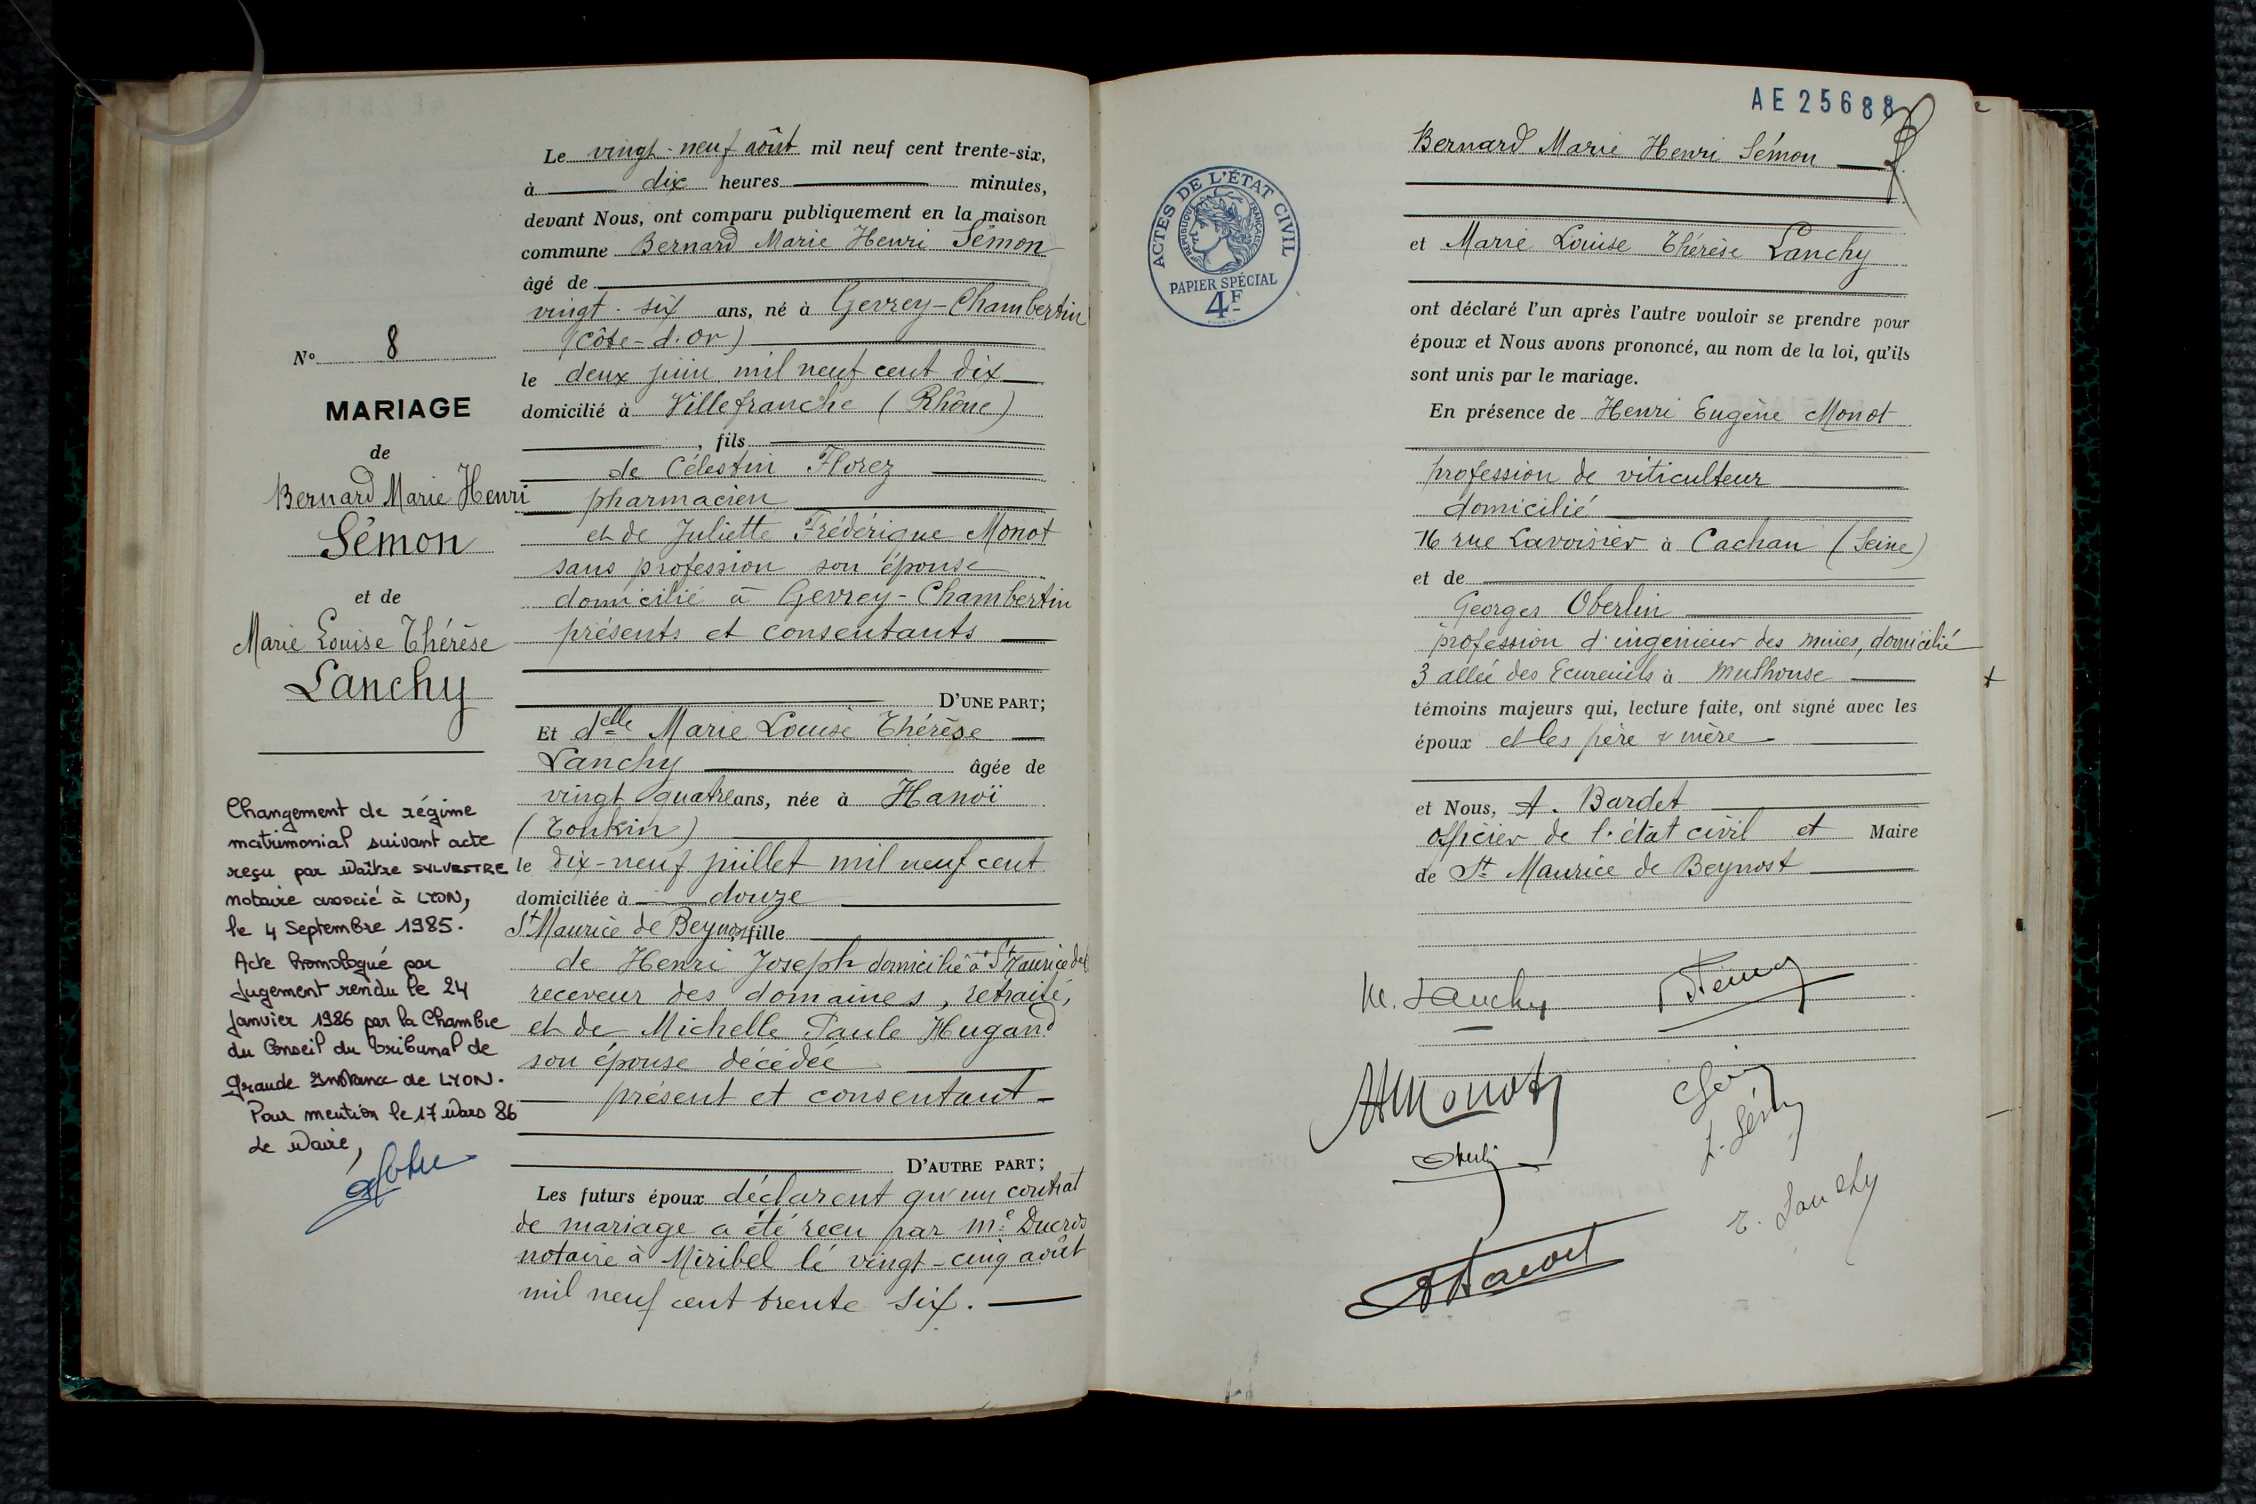 N° 8
MARIAGE
de
Bernard Marie Henri
Sémon
et de
Marie Louise Thérèse
Lanchy
Changement de régime
matrimonial suivant acte
reçu par Maître SYLVESTRE
notaire associé à LYON,
le 4 Septembre 1985.
Acte homologué par
Jugement rendu le 24
Janvier 1986 par la Chambre
du Conseil du Tribunal de
Grande Instance de LYON.
Pour mention le 17 Mars 86
Le Maire,
Le vingt-neuf août mil neuf cent trente-six,
à dix heures minutes,
devant Nous, ont comparu publiquement en la maison
commune Bernard Marie Henri Sémon
âgé de
vingt-six ans, né à Gevrey-Chambertin
(Côte-d'Or)
le deux juin mil neuf cent dix
domicilié à Villefranche (Rhône)
, fils
de Célestin Florez
pharmacien
et de Juliette Frédérique Monot
sans profession son épouse
domicilié à Gevrey-Chambertin
présents et consentants
D'UNE PART;
Et delle Marie Louise Thérèse
Lanchy âgée de
vingt quatre ans, née à Hanoï
(Tonkin)
le dix-neuf juillet mil neuf cent
domiciliée à douze
St Maurice de Beynost fille
de Henri Joseph domicilié à St Maurice de B
receveur des domaines, retraité,
et de Michelle Paule Hugand
son épouse décédée
présent et consentant
D'AUTRE PART;
Les futurs époux déclarent qu'un contrat
de mariage a été reçu par Me Ducros
notaire à Miribel le vingt-cinq août
mil neuf cent trente six.
AE25688
ACTES DE L'ÉTAT CIVIL
RÉPUBLIQUE FRANÇAISE
PAPIER SPÉCIAL
4F
Bernard Marie Henri Sémon
et Marie Louise Thérèse Lanchy
ont déclaré l'un après l'autre vouloir se prendre pour
époux et Nous avons prononcé, au nom de la loi, qu'ils
sont unis par le mariage.
En présence de Henri Eugène Monot
profession de viticulteur
domicilié
76 rue Lavoisier à Cachan (Seine)
et de
Georges Oberlin
profession d'ingenieur des mines, domicilié
3 allée des Ecureuils à Mulhouse
témoins majeurs qui, lecture faite, ont signé avec les
époux et les père & mère
et Nous, A. Bardet
officier de l'état civil et Maire
de St Maurice de Beynost
M. Lanchy
Monot